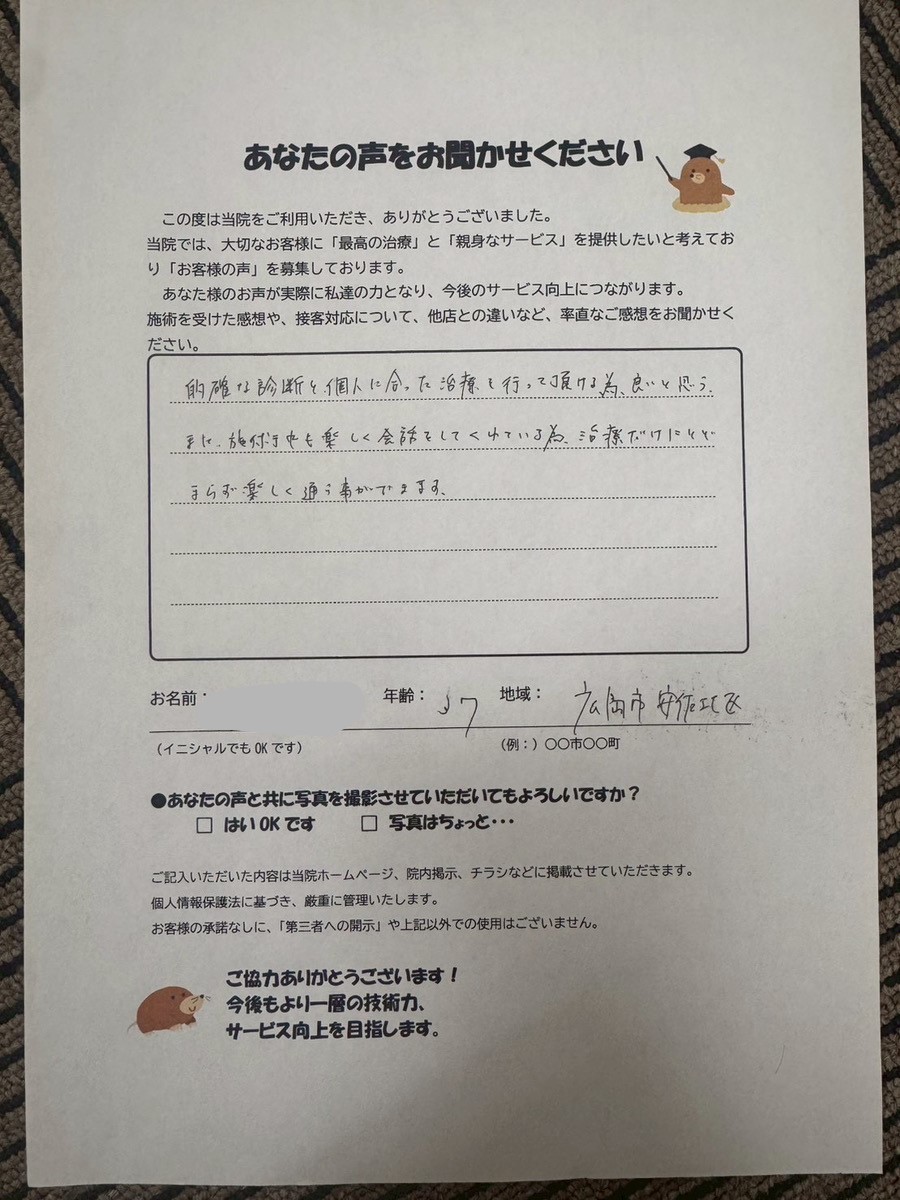 あなたの声をお聞かせください
この度は当院をご利用いただき、ありがとうございました。
当院では、大切なお客様に「最高の治療」と「親身なサービス」を提供したいと考えてお
り「お客様の声」を募集しております。
あなた様のお声が実際に私達の力となり、今後のサービス向上につながります。
施術を受けた感想や、接客対応について、他店との違いなど、率直なご感想をお聞かせく
ださい。
的確な診断と個人に合った治療を行って頂ける為、良いと思う。
また、施術中も楽しく会話をしてくれている為、治療だけにとど
まらず楽しく通う事ができます。
お名前： 年齢： 37 地域： 広島市安佐北区
（イニシャルでもOKです） （例：）〇〇市〇〇町
●あなたの声と共に写真を撮影させていただいてもよろしいですか？
□ はいOKです □ 写真はちょっと・・・
ご記入いただいた内容は当院ホームページ、院内掲示、チラシなどに掲載させていただきます。
個人情報保護法に基づき、厳重に管理いたします。
お客様の承諾なしに、「第三者への開示」や上記以外での使用はございません。
ご協力ありがとうございます！
今後もより一層の技術力、
サービス向上を目指します。